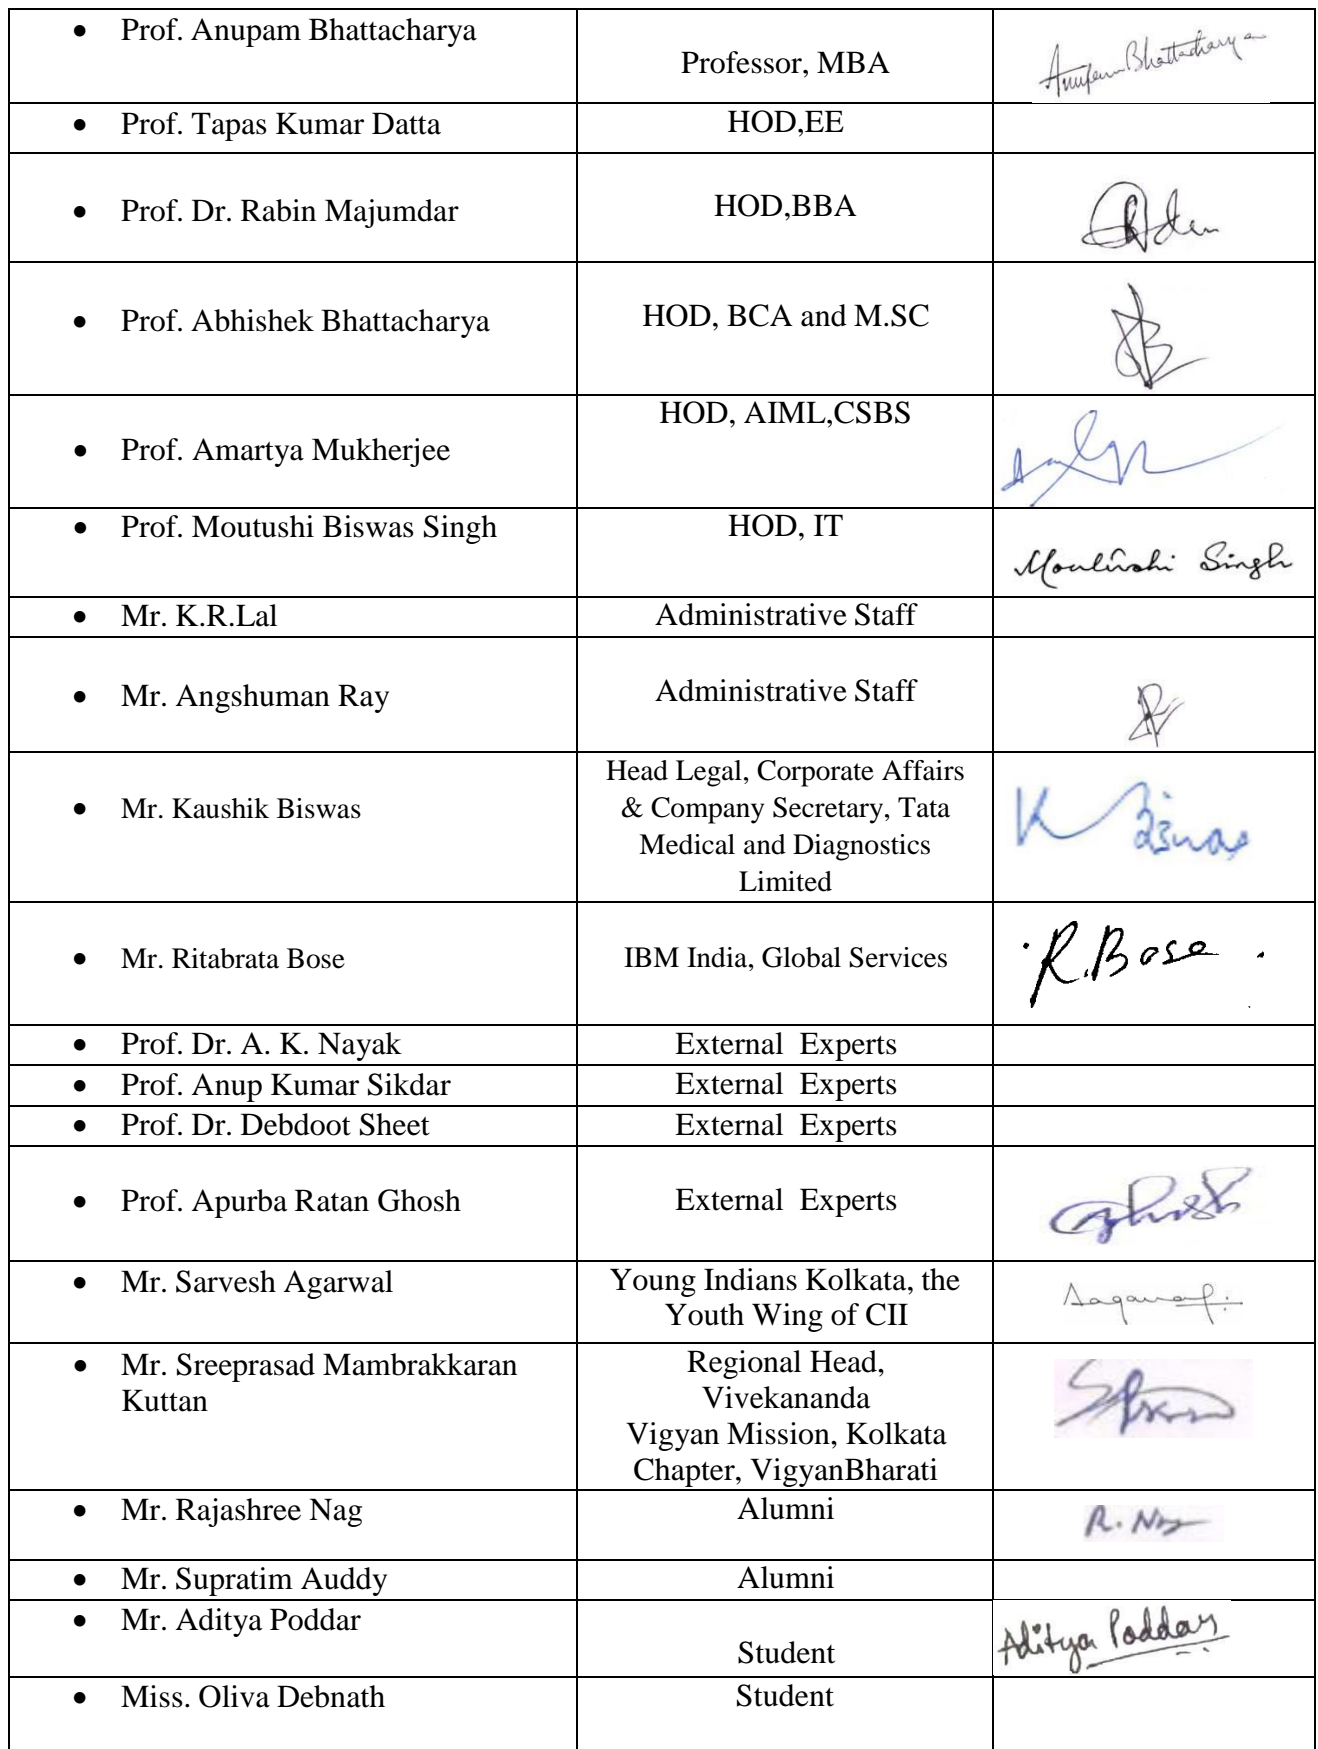 • Prof. Anupam Bhattacharya
Professor, MBA
Anupam Bhattacharya
• Prof. Tapas Kumar Datta
HOD,EE
• Prof. Dr. Rabin Majumdar
HOD,BBA
• Prof. Abhishek Bhattacharya
HOD, BCA and M.SC
• Prof. Amartya Mukherjee
HOD, AIML,CSBS
• Prof. Moutushi Biswas Singh
HOD, IT
Moutushi Singh
• Mr. K.R.Lal
Administrative Staff
• Mr. Angshuman Ray
Administrative Staff
• Mr. Kaushik Biswas
Head Legal, Corporate Affairs
& Company Secretary, Tata
Medical and Diagnostics
Limited
K Biswas
• Mr. Ritabrata Bose
IBM India, Global Services
R. Bose
• Prof. Dr. A. K. Nayak
External Experts
• Prof. Anup Kumar Sikdar
External Experts
• Prof. Dr. Debdoot Sheet
External Experts
• Prof. Apurba Ratan Ghosh
External Experts
• Mr. Sarvesh Agarwal
Young Indians Kolkata, the
Youth Wing of CII
• Mr. Sreeprasad Mambrakkaran
Kuttan
Regional Head,
Vivekananda
Vigyan Mission, Kolkata
Chapter, VigyanBharati
• Mr. Rajashree Nag
Alumni
R. Nag
• Mr. Supratim Auddy
Alumni
• Mr. Aditya Poddar
Student
Aditya Poddar
• Miss. Oliva Debnath
Student